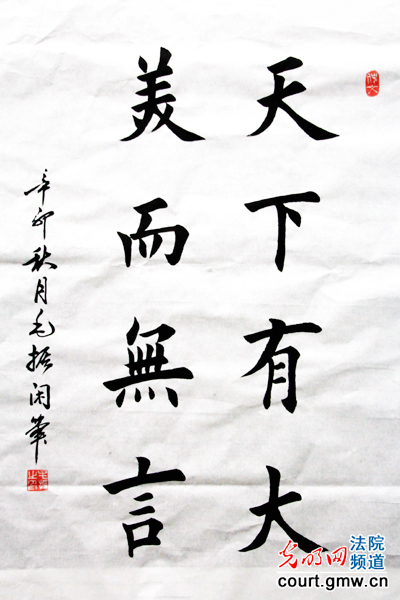 天下有大
美而無言
辛卯秋月毛振闲笔
光明网
法院
频道
court.gmw.cn